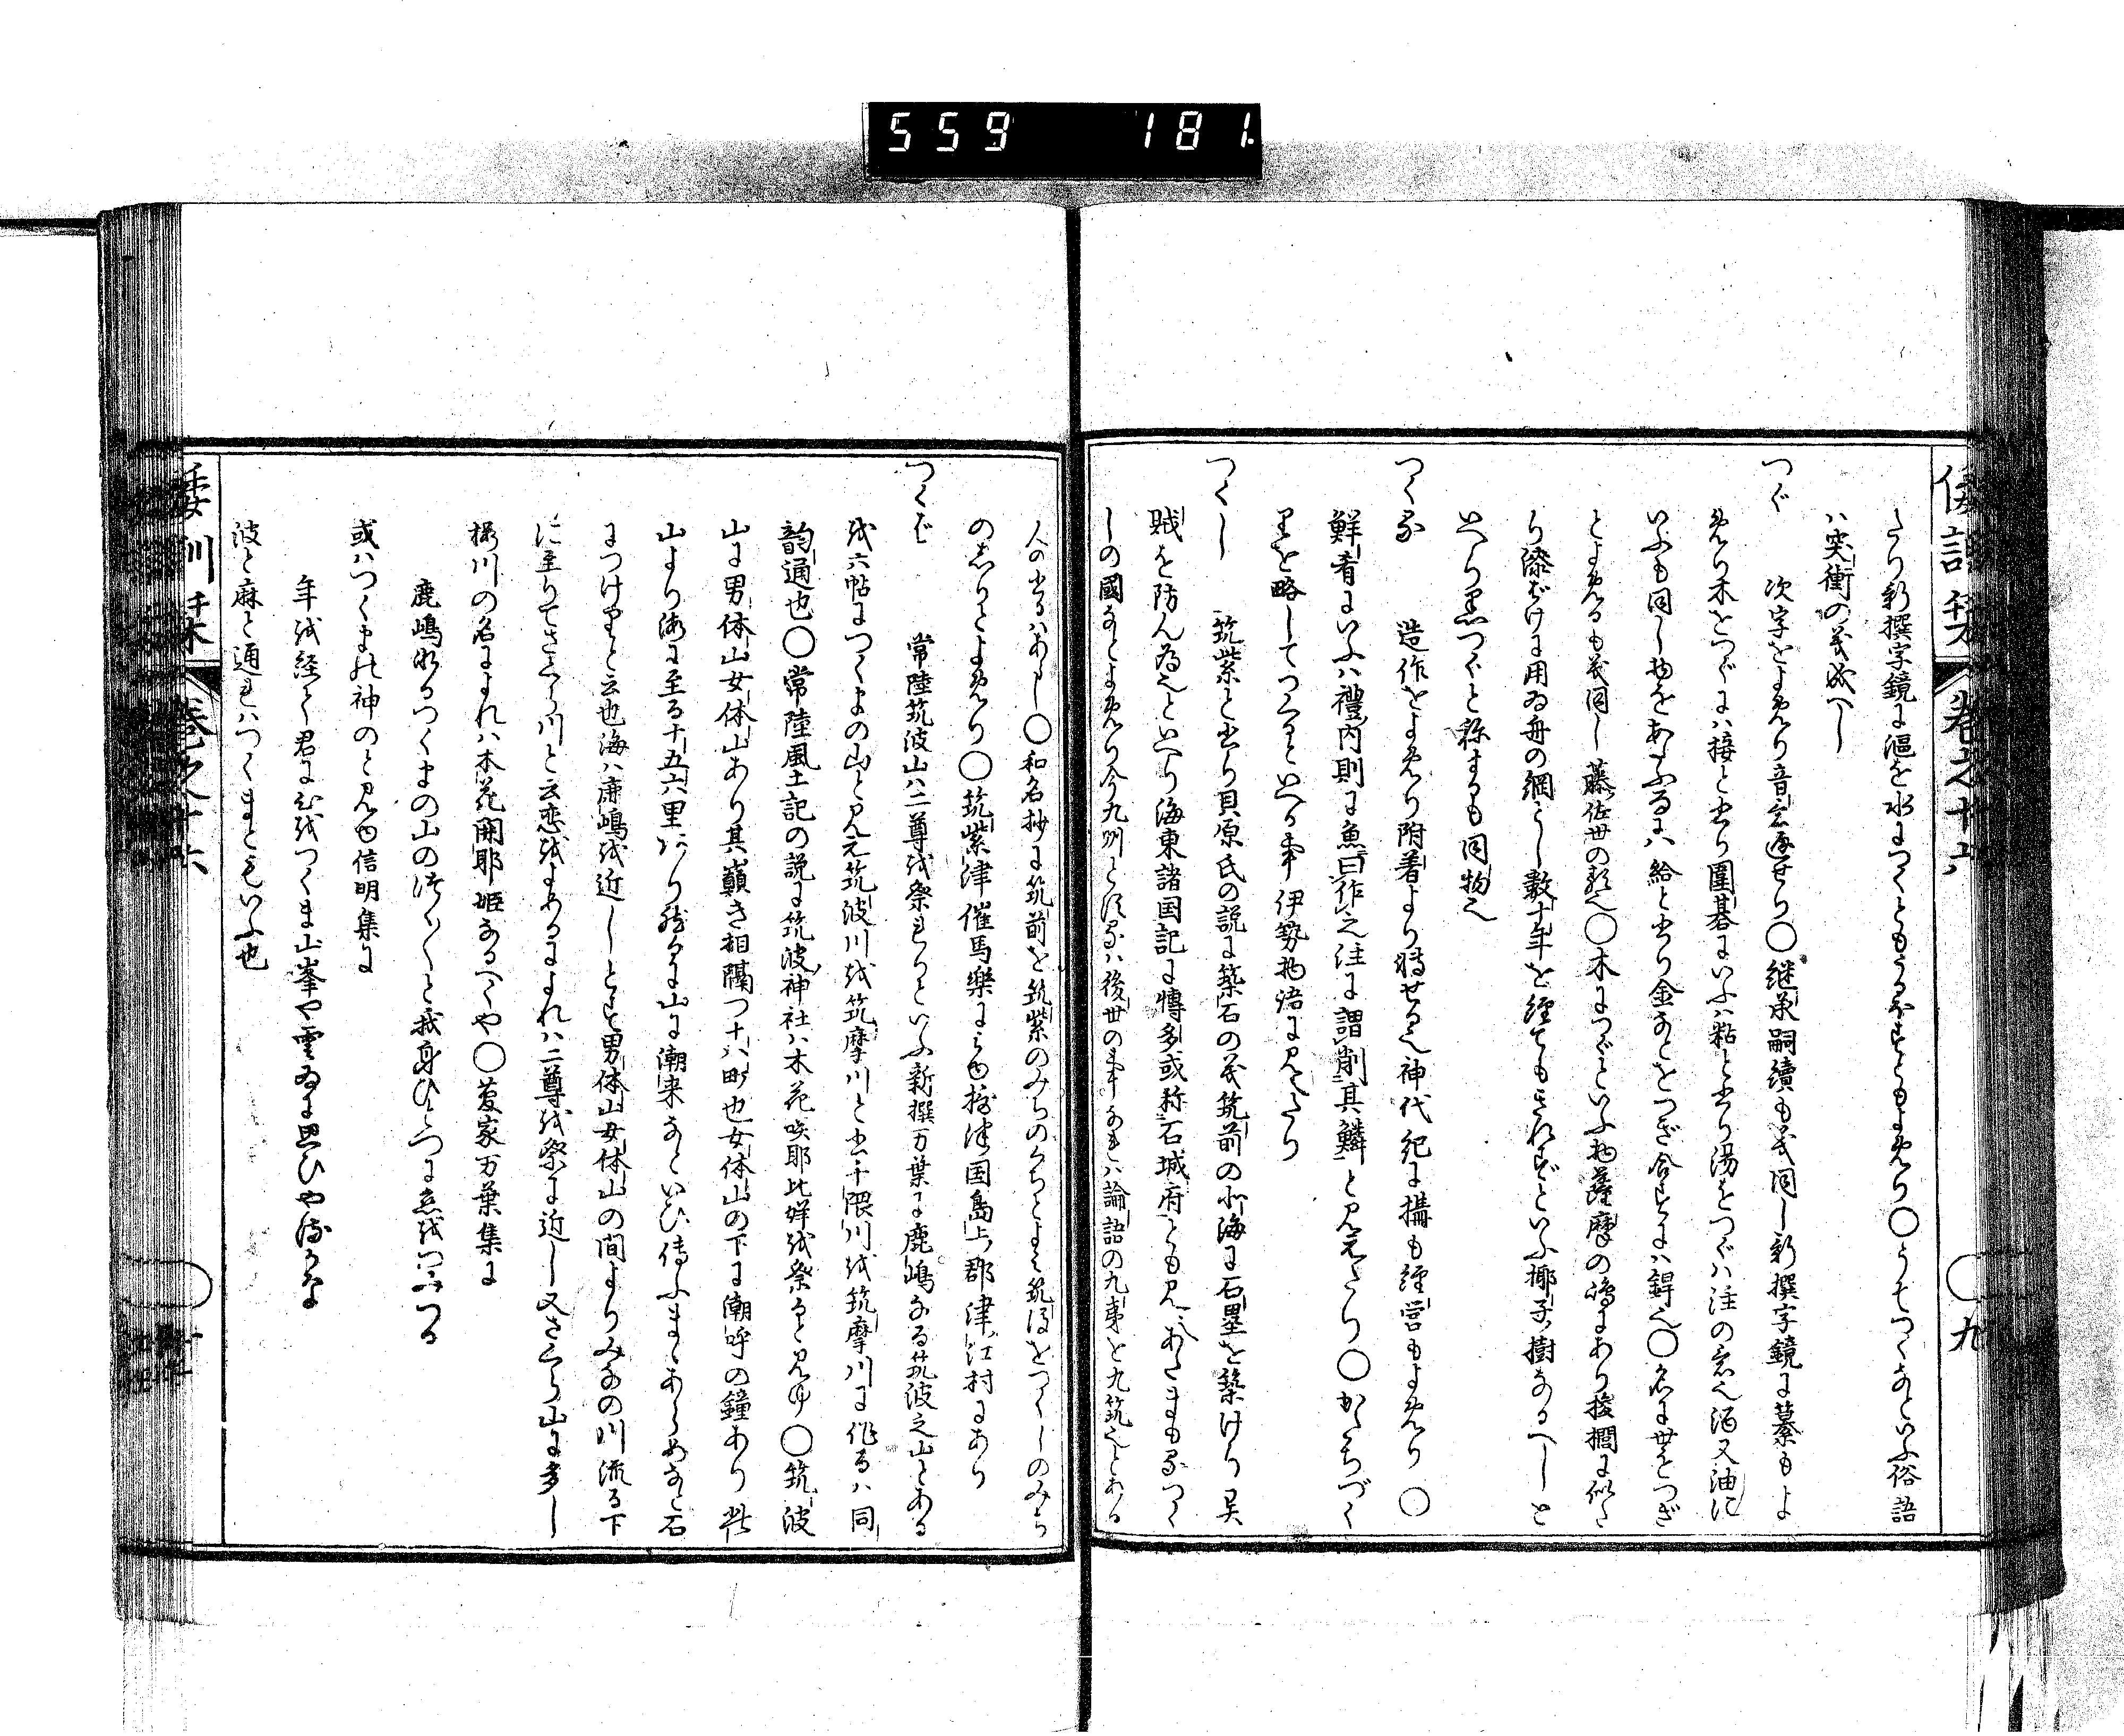 559 181
倭訓栞 巻之十六 九
たり新撰字鏡に漚を水につくともうるほすともよめり○うてつくなといふ俗語
ハ突衝の義成へし
つぐ 次字をよめり音㐂通せり○継承嗣續も義同し新撰字鏡に纂もよ
めり木をつぐにハ接と書り圍碁にいふハ粘と書り湯をつぐハ注の意也酒又油に
いふも同し物をあたふるにハ給と書り金なとをつぎ合すにハ銲也○名に世をつぎ
とよめるも義同し藤佐世の類也○木につぐといふ物薩摩の嶋にあり椶櫚に似た
り漆ばけに用ゐ舟の綱とし數十年を經てもきれずといふ椰子樹なるへしと
いへり黒つぐと稱するも同物也
つくる 造作をよめり附著より轉せる也神代紀に搆も經営もよめり○
鮮肴にいふハ禮内則に魚曰作之注に謂削其鱗と見えたり○かたちづく
りを略してつくるといへる事伊勢物語に見えたり
つくし 筑紫と書り貝原氏の説に築石の義筑前の北海に石壘を築けり異
賊を防ん為也といへり海東諸国記に博多或称石城府とも見ゆあたまもるつく
しの國なとよめり今九州とするハ後世の事なれハ論語の九夷を九筑也とある
人の書るハあし○和名抄に筑前を筑紫のみちのくちとよみ筑後をつくしのみち
のしりとよめり○筑紫津催馬樂にみゆ摂津国島上郡津江村にあり
つくば 常陸筑波山ハ二尊を祭れりといふ新撰万葉に鹿嶋なる筑波之山とある
を六帖につくまの山と見え筑波川を筑摩川と書千隈川を筑摩川に作るハ同
韵通也○常陸風土記の説に筑波神社ハ木花咲耶比咩を祭ると見ゆ○筑波
山に男体山女体山あり其巓き相隔つ十八町也女体山の下に潮呼の鐘あり此
山より海に至る十五六里ばかり然るに山に潮来なといひ傳ふまゝあらめなと石
につけりと云也海ハ鹿嶋を近しとす男体山女体山の間よりみなの川流る下
に至りてさくら川と云恋をよめるによれハ二尊を祭に近し又さくら山に多し
櫻川の名によれハ木花開耶姫なるへくや○菅家万葉集に
鹿嶋なるつくまの山のつく〱と我身ひとつに恋をつみつる
或ハつくまの神のと見ゆ信明集に
年を経て君に心をつくま山峯や雲ゐに思ひやるかな
波と麻と通れハつくまともいふ也
倭訓栞 巻之十六